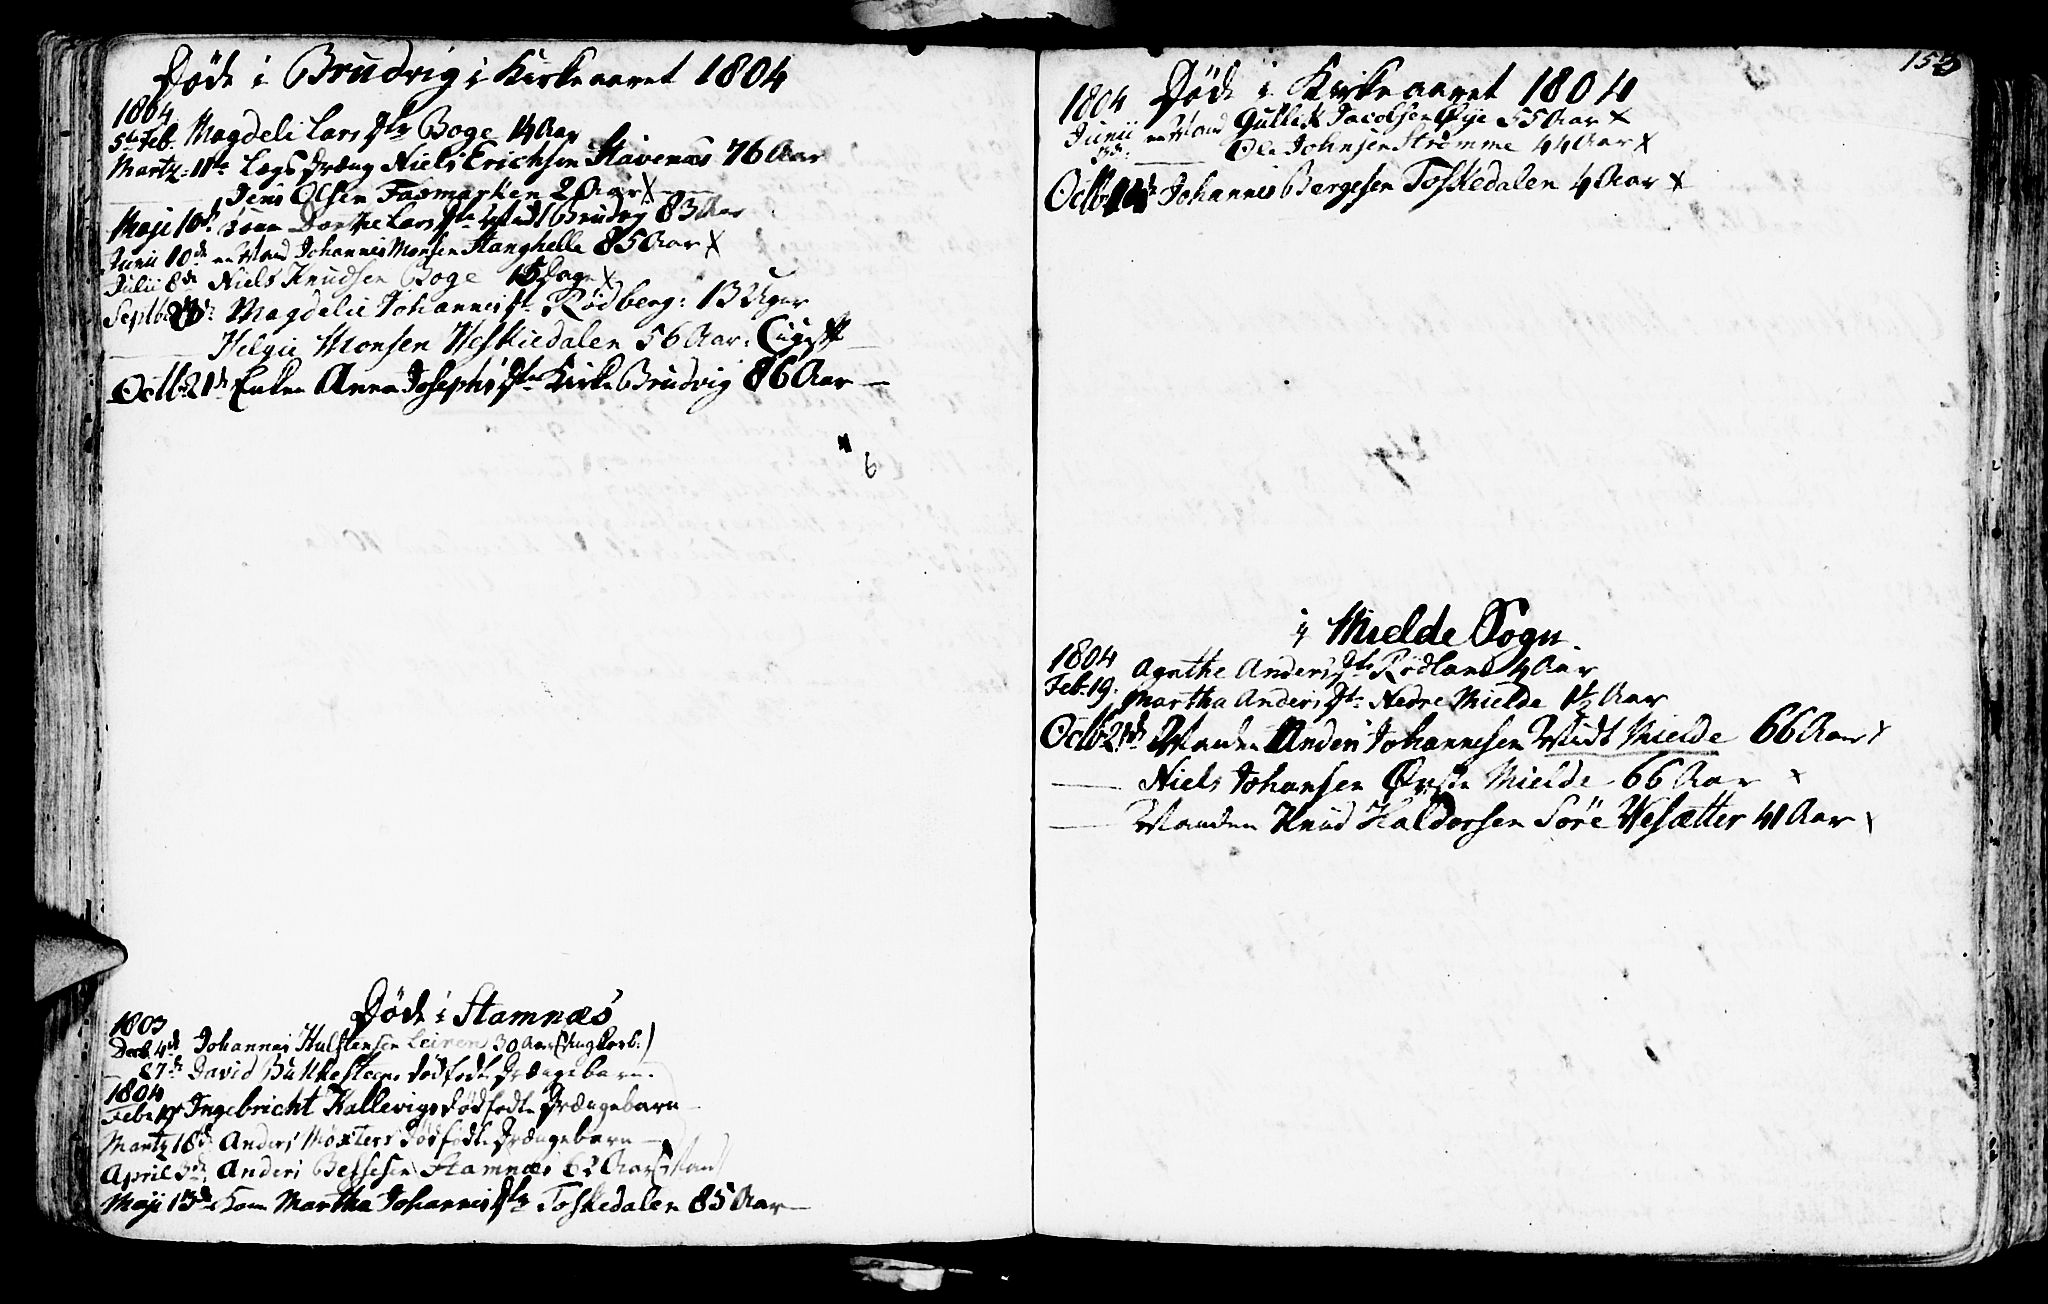 Døde i Brudvig i Kirkeaaret 1804
1804
5te Feb. Magdeli Lars Dtr Boge 14 Aar
Martz 11te Lægs Dræng Niels Erichsen Stavenæs 76 Aar
Jens Olsen Fasmarken 2 Aar X
Maji 10de Kone Dorthe Lars Dtr Brudvig 83 Aar
Junii 10de en Mand Johannes Monsen Stanghelle 85 Aar X
Julii 8de Niels Knudsen Boge 15 Dage X
Septb. Magdeli Johannis Dtr Rødberg: 13 Uger
Helgie Monsen Heskiedalen 56 Aar.
Octb. 21de Enken Anna Josephs Dtr Kirke Brudvig 86 Aar
6
Døde i Stamnæs
1803
Decb. 4de Johannes Hulstensen Leiren 30 Aar
87de David Bukkesteens dødfødte Drængebarn.
1804
Feb. Ingebricht Kallevigs dødfødte Drængebarn
Martz 18de Anders Moxters dødfødte Drængebarn
April 3de Anders Bessesen Stamnæs 62 Aar
Maji 13de Kone Martha Johannis Dtr Toskedalen 85 Aar
153
Døde i Kirkeaaret 1804
1804
Junii en Mand Gullik Jacobsen Øye 55 Aar X
Ole Johnsen Strømme 44 Aar X
Octb. Johannes Børgesen Toskedalen 4 Aar X
i Mielde Sogn
1804 Agathe Anders Dtr Rødland 4 Aar
Feb. 19. Martha Anders Dtr Nedre Mielde 1½ Aar
Octb. 21de Manden Anders Johannesen Midt Mielde 66 Aar X
Niels Johansen Øvste Mielde 66 Aar X
Manden Knud Haldorsen Søre Wesætter 41 Aar X